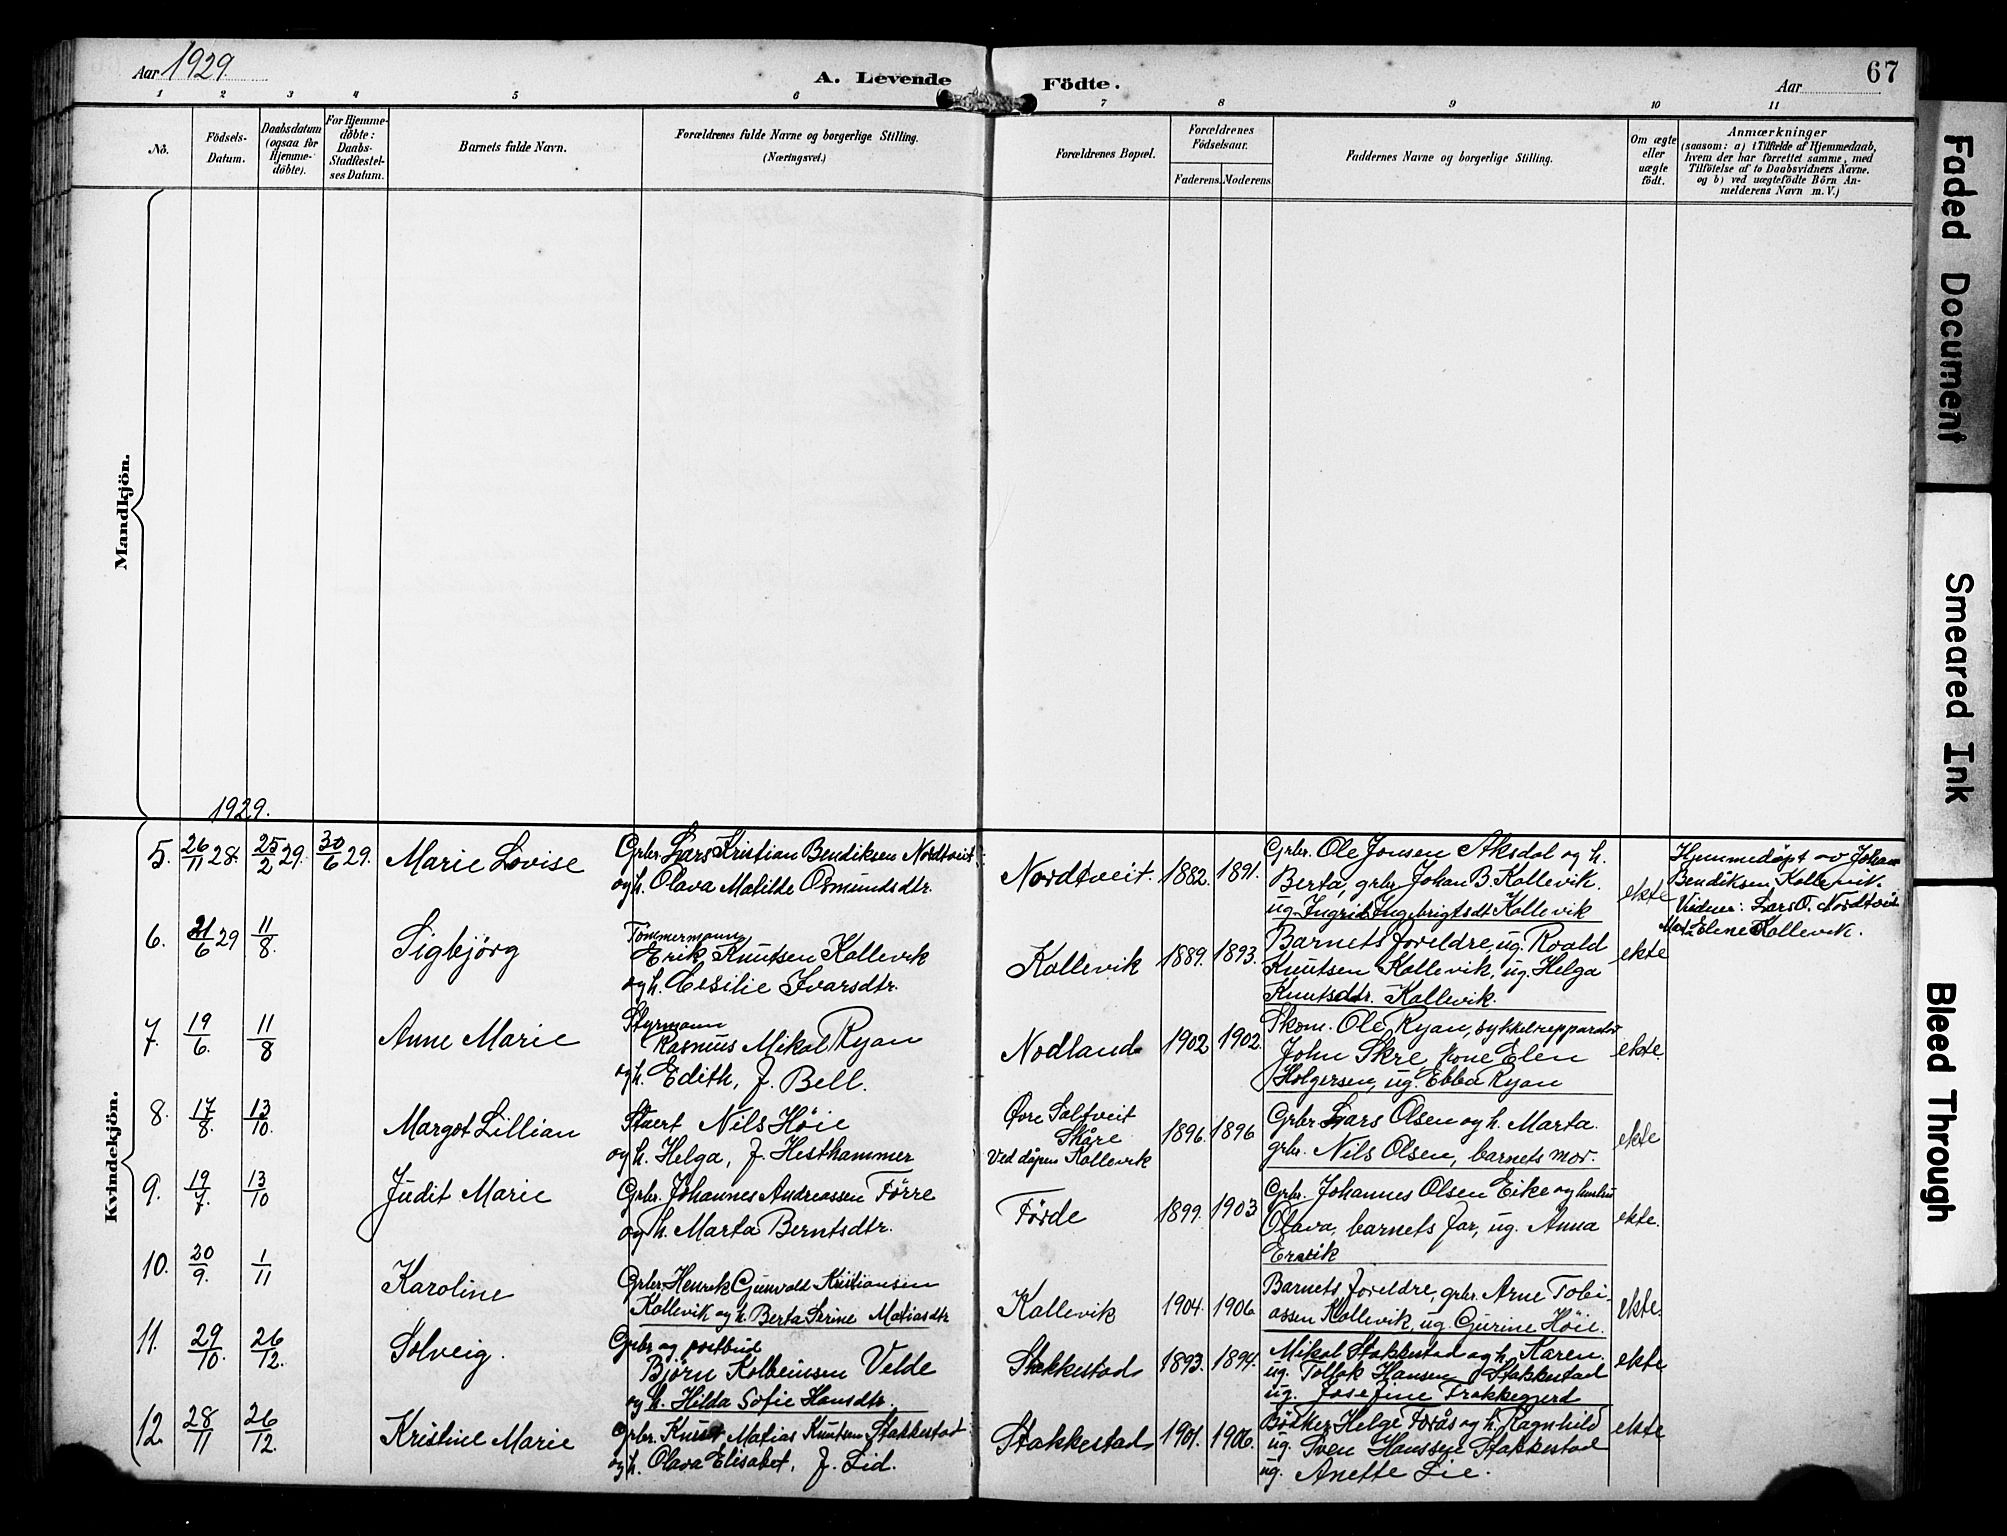 Aar 1929.
A. Levende Födte.
Aar
67
1 2 3 4 5 6 7 8 9 10 11
No.
Födsels-Datum.
Daabsdatum (ogsaa for Hjemme-döbte).
For Hjemme-döbte: Daabs-Stadfæstel-ses Datum.
Barnets fulde Navn.
Forældrenes fulde Navne og borgerlige Stilling. (Næringsvei.)
Forældrenes Bopæl.
Forældrenes Födselsaar.
Faderens. Moderens.
Faddernes Navne og borgerlige Stilling.
Om ægte eller uægte födt.
Anmærkninger
(saasom: a) i Tilfælde af Hjemmedaab,
hvem der har forrettet samme, med
Tilföielse af to Daabsvidners Navne.
og b) ved uægtefödte Börn An-
melderens Navn m. V.)
Mandkjön.
1929.
Kvindekjön.
5. 26/11 28. 25/2 29. 30/6 29. Marie Lovise
Grbr. Lars Kristian Bendiksen Nordtveit
og h. Olava Matilde Osmundsdtr.
Nordtveit. 1882. 1891.
Grbr. Ole Jonsen Aksdal og h.
Berta, grbr. Johan B. Kallevik.
ug. Ingrid Ingebrigtsdt Kallevik
ekte
Hjemmedöpt av Johan
Bendiksen Kallevik.
Vidner: Lars O. Nordtveit
Elene Kallevik.
6. 21/6 29 11/8 Sigbjörg
Tömmermann
Erik Knutsen Kallevik
og h. Cesilie Ivarsdtr.
Kallevik 1889. 1893.
Barnets foreldre, ug. Roald
Knutsen Kallevik, ug. Helga
Knutsdtr. Kallevik.
ekte
7. 19/6. 11/8 Anne Marie
Styrmann
Rasmus Mikal Ryan
og h. Edith, f. Bell.
Nodland 1902 1902
Skom. Ole Ryan, sykkelrepparatör
John Skre, kone Elen
Holgersen, ug. Ebba Ryan
ekte.
8. 17/8. 13/10. Margot Lillian
Nils Höie
og h. Helga, f. Hesthammer
Övre Saltveit
Skåre
Ved dåpen Kallevik
1896. 1896
Grbr. Lars Olsen og h. Marta.
grbr. Nils Olsen, barnets mor.
ekte
9. 19/7. 13/10 Judit Marie
Grbr. Johannes Andreassen Förre
og h. Marta Berntsdtr.
Förde 1899. 1903
Grbr. Johannes Olsen Eike og hustru
Olava, barnets far, ug. Anna
ekte.
10. 20/9. 1/11 Karoline
Grbr. Henrik Gunvald Kristiansen
Kallevik og h. Berta Serine Matiasdtr
Kallevik 1904. 1906
Barnets foreldre, grbr. Arne Tobi-
assen Kallevik, ug. Gurine Höie.
ekte.
11. 29/10. 26/12. Solveig.
Grbr og postbud
Björn Kolbeinsen Velde
og h. Hilda Sofie Hansdtr.
Stakkestad 1893. 1894.
Mikal Stakkestad og h. Karen.
ug. Tollak Hansen Stakkestad
ug. Josefine Frakkagjerd
ekte
12. 28/11 26/12. Kristine Marie
Grbr. Knut Matias Knutsen Stakkestad
og h. Olava Elisabet, f. Lid.
Stakkestad 1901. 1906.
Bödker Helge Förås og h. Ragnhild
ug. Sven Hanssen Stakkestad
ug. Anette Lie.
ekte
Faded Document
Smeared Ink
Bleed Through